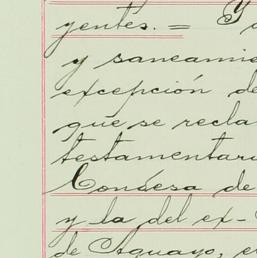 yentes. = Y
y saneamie
excepción de
que se recla
testamentari
Condesa de
y la del ex-
de Aguayo, e